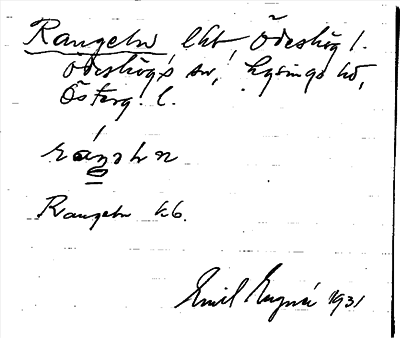 Rangeln, lht, Ödeshög 1.
Ödeshögs sn, Lysings hd,
Österg. l.
Rangeln kb.
Emil 1931